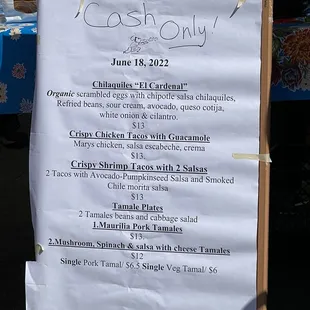 Cash Only!
June 18, 2022
Chilaquiles "El Cardenal"
Organic scrambled eggs with chipotle salsa chilaquiles,
Refried beans, sour cream, avocado, queso cotija,
white onion & cilantro.
$13
Crispy Chicken Tacos with Guacamole
Marys chicken, salsa escabeche, crema
$13.
Crispy Shrimp Tacos with 2 Salsas
2 Tacos with Avocado-Pumpkinseed Salsa and Smoked
Chile morita salsa
$13
Tamale Plates
2 Tamales beans and cabbage salad
1.Maurilia Pork Tamales
$13.
2.Mushroom, Spinach & salsa with cheese Tamales
$12
Single Pork Tamal/ $6.5 Single Veg Tamal/ $6